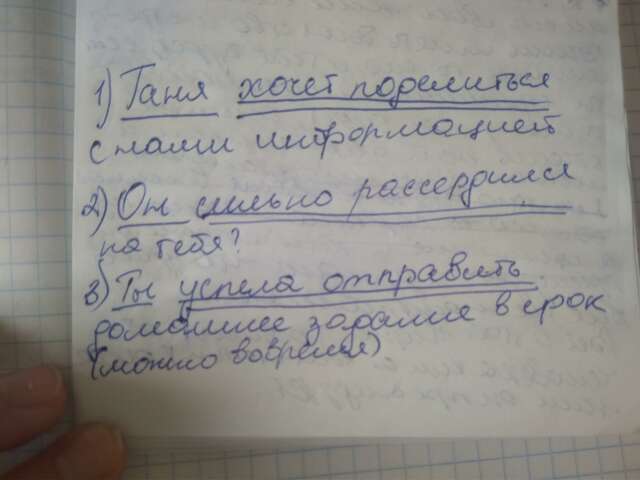 1) Таня хочет поделиться
с нами информацией
2) Он сильно рассердился
на тебя?
3) Ты успела отправить
домашнее задание в срок
(можно вовремя)